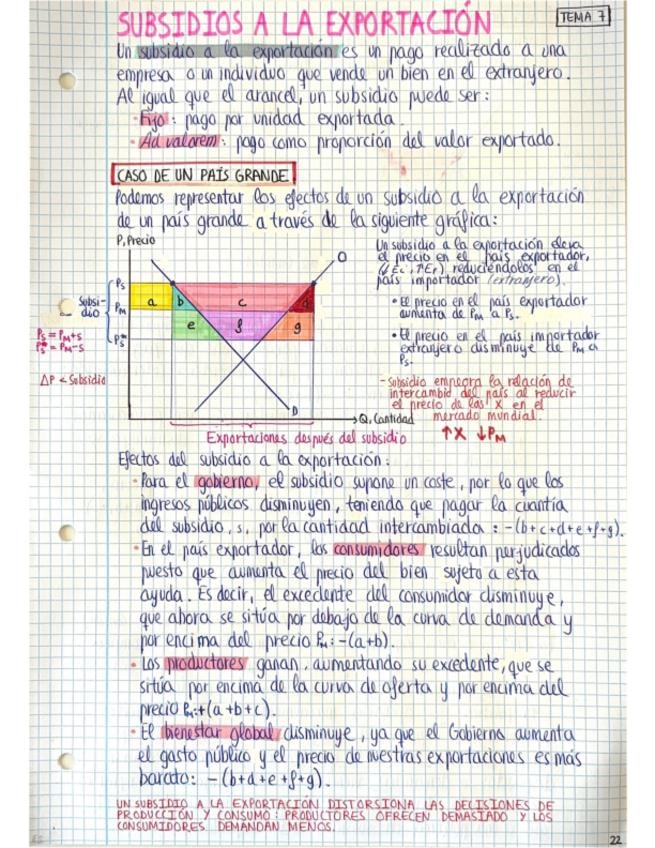 SUBSIDIOS A LA EXPORTACIÓN
TEMA 7
Un subsidio a la exportación es un pago realizado a una
empresa o un individuo que vende un bien en el extranjero.
Al igual que el arancel, un subsidio puede ser:
· Fijo: pago por unidad exportada.
· Ad valorem: pago como proporción del valor exportado.
CASO DE UN PAÍS GRANDE
Podemos representar los efectos de un subsidio a la exportación
de un país grande a través de la siguiente gráfica:
P, Precio
O
Ps
Subsi-
dio
PM
Ps*
a
b
c
d
e
f
g
D
Q, Cantidad
Exportaciones después del subsidio
Ps = PM+s
Ps* = PM-s
ΔP < Subsidio
Un subsidio a la exportación eleva
el precio en el país exportador,
(↓Ec, ↑Ep) reduciéndolos en el
país importador (extranjero).
· El precio en el país exportador
aumenta de PM a Ps.
· El precio en el país importador
extranjero disminuye de PM a
Ps.
- Subsidio empeora la relación de
intercambio del país al reducir
el precio de las X en el
mercado mundial.
↑X ↓PM
Efectos del subsidio a la exportación:
· Para el gobierno, el subsidio supone un coste, por lo que los
ingresos públicos disminuyen, teniendo que pagar la cuantía
del subsidio, s, por la cantidad intercambiada: -(b+c+d+e+f+g).
· En el país exportador, los consumidores resultan perjudicados
puesto que aumenta el precio del bien sujeto a esta
ayuda. Es decir, el excedente del consumidor disminuye,
que ahora se sitúa por debajo de la curva de demanda y
por encima del precio PM: -(a+b).
· Los productores ganan, aumentando su excedente, que se
sitúa por encima de la curva de oferta y por encima del
precio PM: +(a+b+c).
· El bienestar global disminuye, ya que el Gobierno aumenta
el gasto público y el precio de nuestras exportaciones es más
barato: -(b+d+e+f+g).
UN SUBSIDIO A LA EXPORTACIÓN DISTORSIONA LAS DECISIONES DE
PRODUCCIÓN Y CONSUMO: PRODUCTORES OFRECEN DEMASIADO Y LOS
CONSUMIDORES DEMANDAN MENOS.
22